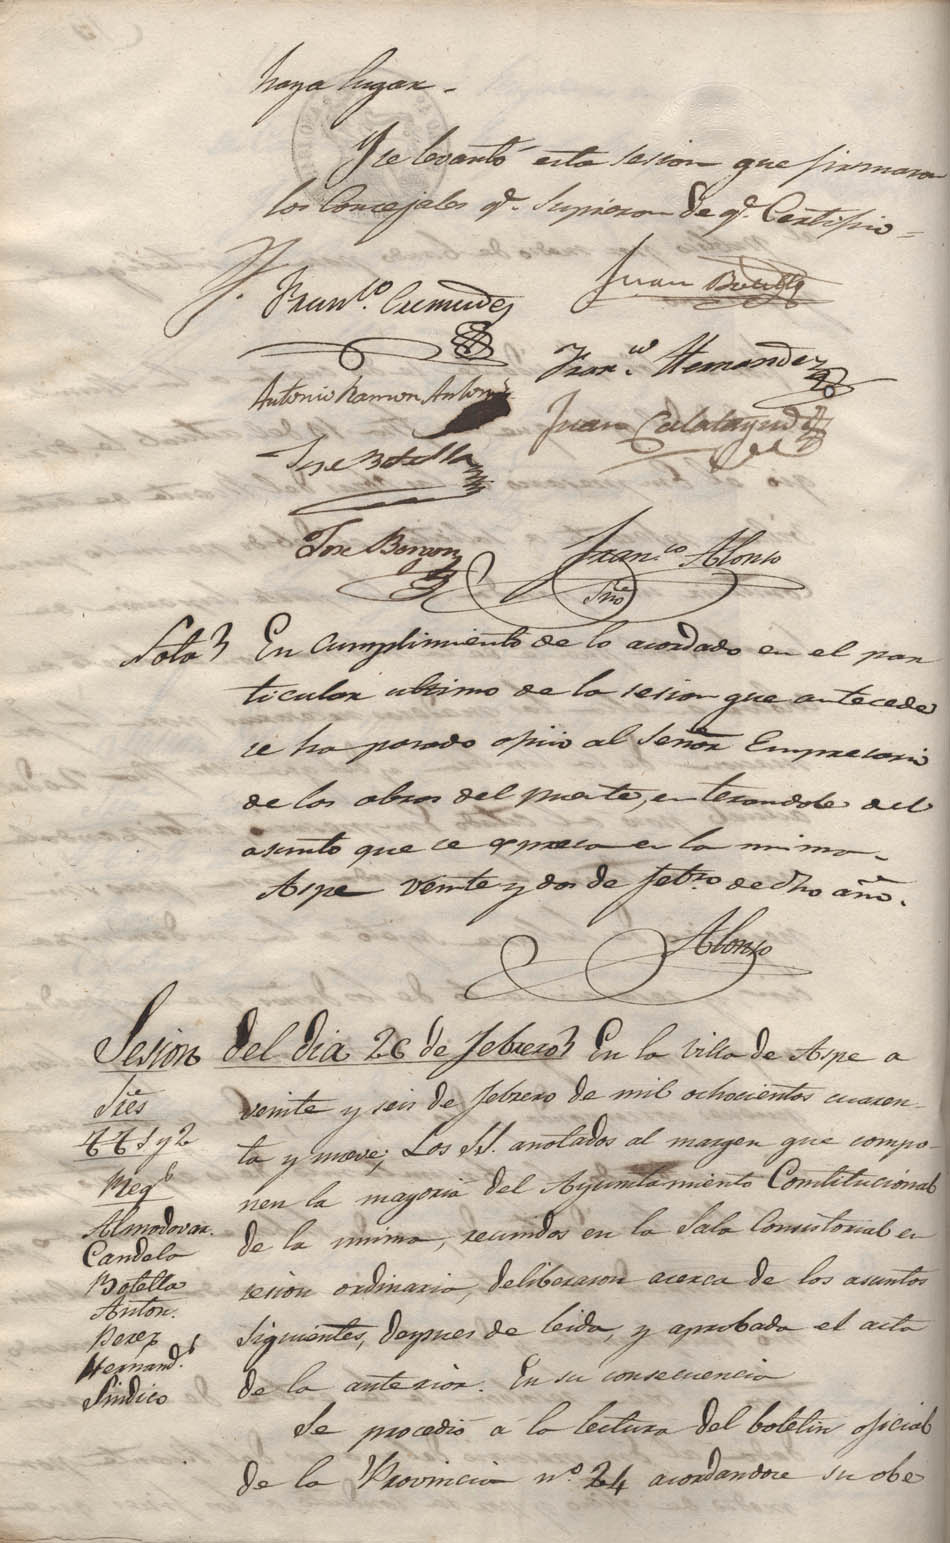 haya lugar.
Y se levantó esta sesion que firmaron
los Concejales qe. supieron de qe. Certifico=
Franco. Cremades
Juan Botella
Franco. Hernandez
Antonio Ramon Anton
Juan Calatayud
Jose Botella
Jose Berron
Franco. Alonso
Srio
Nota En cumplimiento de lo acordado en el par
ticular ultimo de la sesion que antecede
se ha pasado oficio al Señor Empresario
de las obras del puente, enterandole del
asunto que se espresa en la misma.
Aspe veinte y dos de febro. de dho año.
Alonso
Sesion del dia 26 de febrero En la Villa de Aspe a
Sres
veinte y seis de febrero de mil ochocientos cuaren-
1 y 2
ta y nueve; Los SS. anotados al margen que compo-
Regs
nen la mayoria del Ayuntamiento Constitucional
Almodovar.
de la misma, reunidos en la Sala Consistorial en
Candela
Botella
sesion ordinaria, deliberaron acerca de los asuntos
Anton.
Perez
siguientes, despues de leida, y aprobada el acta
Hernandz
de la anterior. En su consecuencia
Sindico
Se procedió á la lectura del boletin oficial
de la Provincia no. 24 acordandose su obe